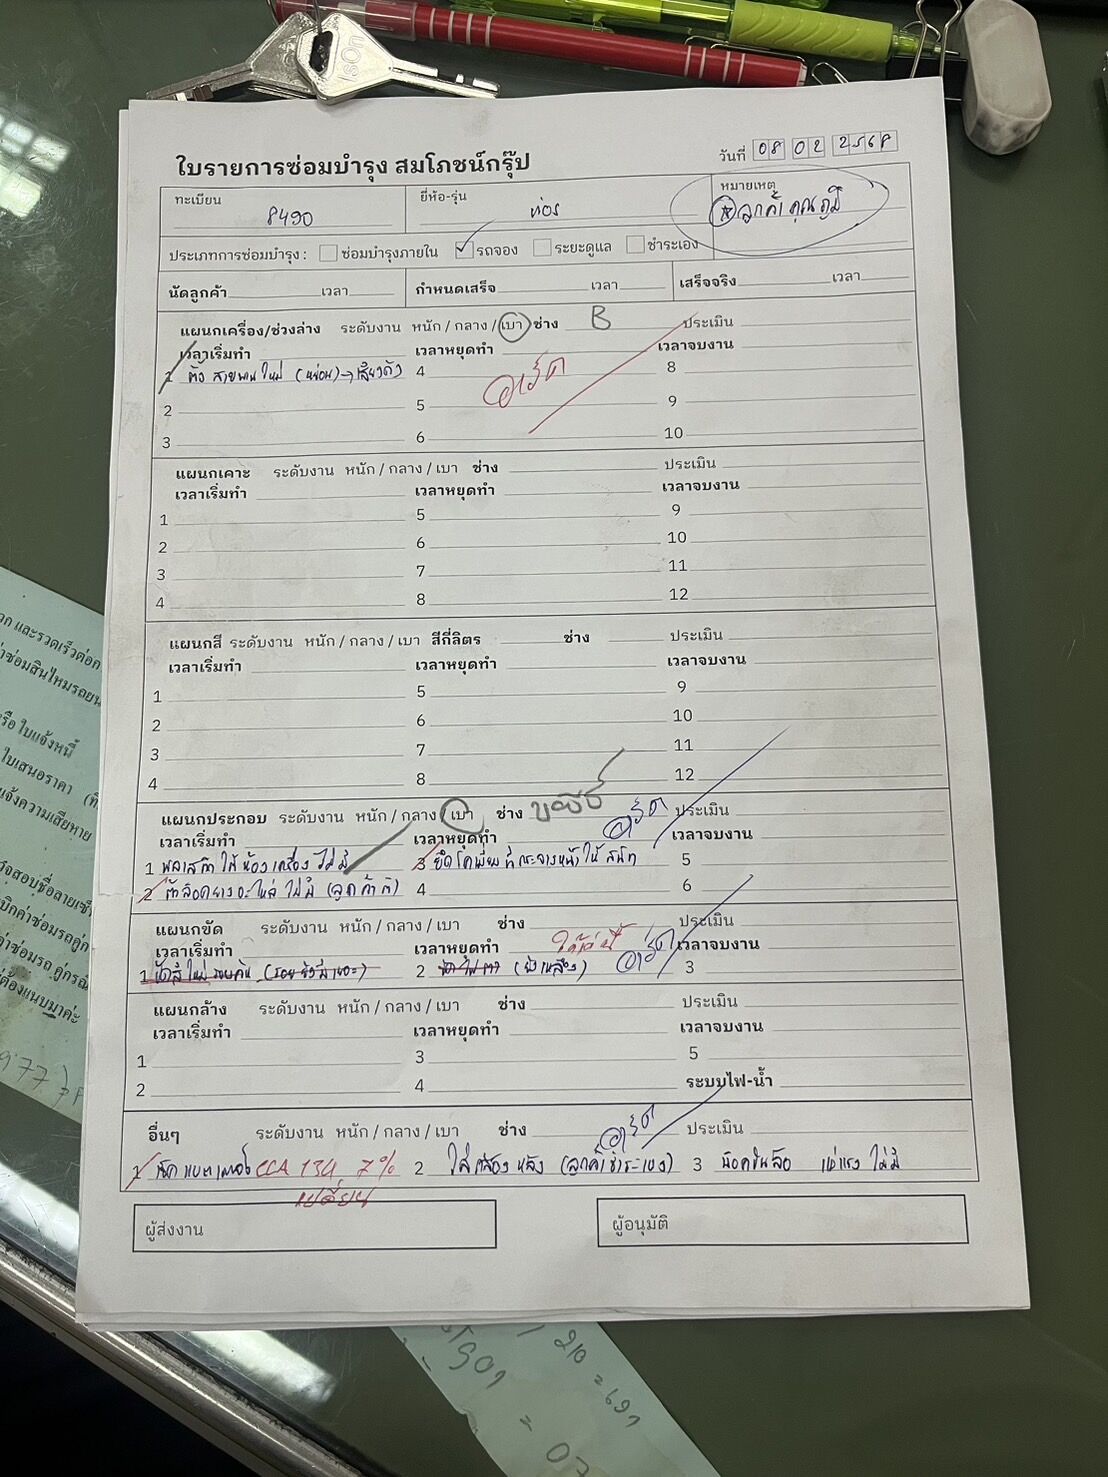 ใบรายการซ่อมบำรุง สมโภชน์กรุ๊ป
วันที่ 08 02 2568
ทะเบียน 8490
ยี่ห้อ-รุ่น
หมายเหตุ ลูกค้า คุณภูมิ
ประเภทการซ่อมบำรุง : ซ่อมบำรุงภายใน รถจอง ระยะดูแล ชำระเอง
นัดลูกค้า เวลา กำหนดเสร็จ เวลา เสร็จจริง เวลา
แผนกเครื่อง/ช่วงล่าง ระดับงาน หนัก / กลาง / เบา ช่าง B ประเมิน
เวลาเริ่มทำ เวลาหยุดทำ เวลาจบงาน
1 ตั้ง สายพานใหม่ (หย่อน) → เสียงดัง 4 8
2 5 9
3 6 10
แผนกเคาะ ระดับงาน หนัก / กลาง / เบา ช่าง ประเมิน
เวลาเริ่มทำ เวลาหยุดทำ เวลาจบงาน
1 5 9
2 6 10
3 7 11
4 8 12
แผนกสี ระดับงาน หนัก / กลาง / เบา สีกี่ลิตร ช่าง ประเมิน
เวลาเริ่มทำ เวลาหยุดทำ เวลาจบงาน
1 5 9
2 6 10
3 7 11
4 8 12
แผนกประกอบ ระดับงาน หนัก / กลาง / เบา ช่าง ประเมิน
เวลาเริ่มทำ เวลาหยุดทำ เวลาจบงาน
1 พลาสติกใต้ห้องเครื่อง ไม่มี 3 กระจกหน้าให้สนิท 5
2 ตัวล็อคยางอะไหล่ ไม่มี 4 6
แผนกขัด ระดับงาน หนัก / กลาง / เบา ช่าง ประเมิน
เวลาเริ่มทำ เวลาหยุดทำ ได้แค่นี้ เวลาจบงาน
1 ขัดสีใหม่รอบคัน (รอยยังมีเยอะ) 2 ขัดไฟ (ยังเหลือง) 3
แผนกล้าง ระดับงาน หนัก / กลาง / เบา ช่าง ประเมิน
เวลาเริ่มทำ เวลาหยุดทำ เวลาจบงาน
1 3 5
2 4 ระบบไฟ-น้ำ
อื่นๆ ระดับงาน หนัก / กลาง / เบา ช่าง ประเมิน
1 เช็คแบตเตอรี่ CCA 134 7% 2 ใส่กล้องหลัง (ลูกค้าชำระเอง) 3 น็อคขันล้อ แม่แรง ไม่มี
เปลี่ยน
ผู้ส่งงาน ผู้อนุมัติ